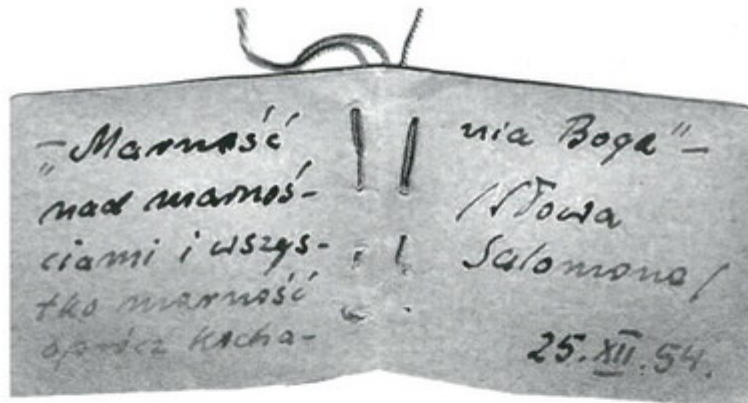 – Marność
"nad marnoś-
ciami i wszys-
tko marność
oprócz kocha-
nia Boga" –
/Słowa
Salomona/
25.XII.54.